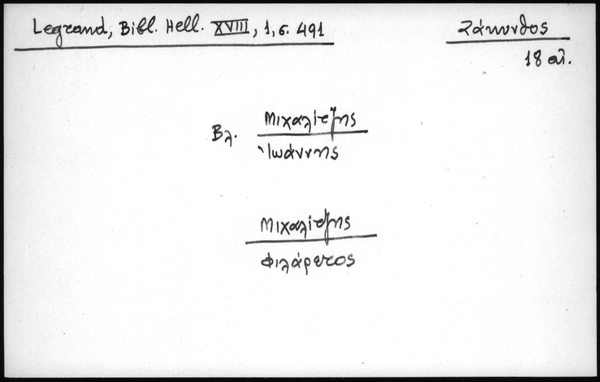 Legrand, Bibl. Hell. XVIII, 1, σ. 491
Ζάκυνθος
18 αἰ.
Βλ. Μιχαλίτζης
Ἰωάννης
Μιχαλίτζης
Φιλάρετος